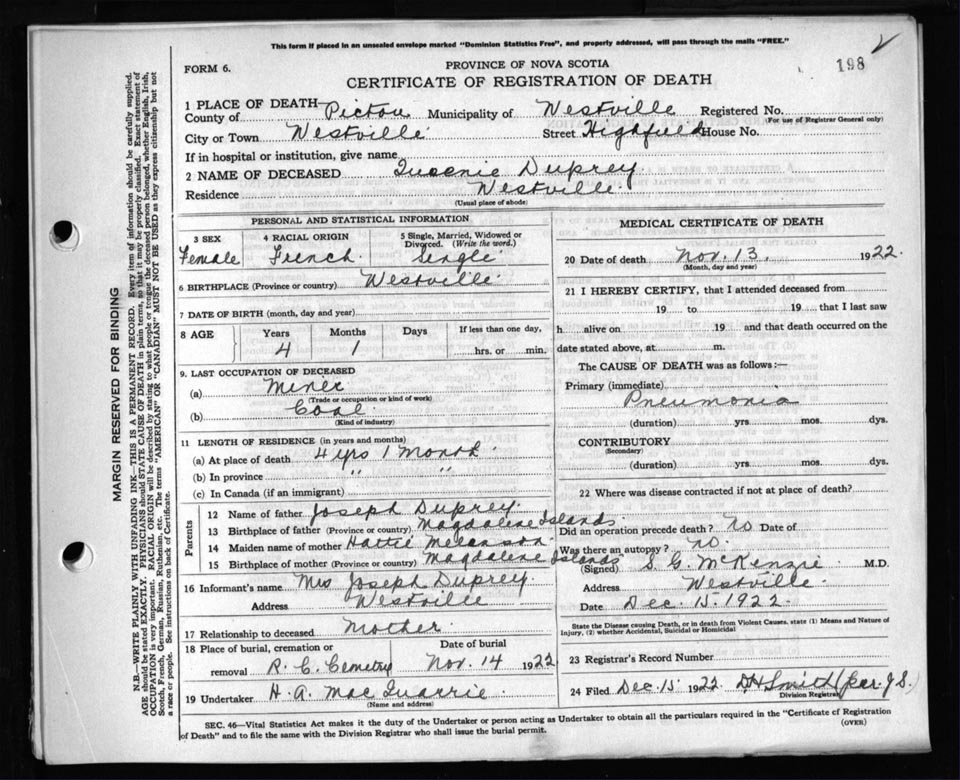 This form if placed in an unsealed envelope marked "Dominion Statistics Free", and properly addressed, will pass through the mails "FREE."
198
FORM 6.
PROVINCE OF NOVA SCOTIA
CERTIFICATE OF REGISTRATION OF DEATH
1 PLACE OF DEATH
County of Pictou Municipality of Westville Registered No.
(For use of Registrar General only)
City or Town Westville Street Highfield House No.
If in hospital or institution, give name
2 NAME OF DECEASED Eugenie Duprey
Residence Westville
(Usual place of abode)
PERSONAL AND STATISTICAL INFORMATION
3 SEX 4 RACIAL ORIGIN 5 Single, Married, Widowed or Divorced. (Write the word.)
Female French Single
6 BIRTHPLACE (Province or country) Westville
7 DATE OF BIRTH (month, day and year)
8 AGE Years Months Days If less than one day,
4 1 hrs. or min.
9. LAST OCCUPATION OF DECEASED
(a) Miner
(Trade or occupation or kind of work)
(b) Coal
(Kind of industry)
11 LENGTH OF RESIDENCE (in years and months)
(a) At place of death 4 yrs 1 Month
(b) In province " "
(c) In Canada (if an immigrant)
Parents
12 Name of father Joseph Duprey
13 Birthplace of father (Province or country) Magdalene Islands
14 Maiden name of mother Hattie Melanson
15 Birthplace of mother (Province or country) Magdalene Islands
16 Informant's name Mrs Joseph Duprey
Address Westville
17 Relationship to deceased Mother
18 Place of burial, cremation or removal Date of burial
R. C. Cemetry Nov. 14 1922
19 Undertaker H. A. MacQuarrie
(Name and address)
MEDICAL CERTIFICATE OF DEATH
20 Date of death Nov. 13, 1922.
(Month, day and year)
21 I HEREBY CERTIFY, that I attended deceased from
19 to 19 that I last saw
h alive on 19 and that death occurred on the
date stated above, at m.
The CAUSE OF DEATH was as follows:—
Primary (immediate)
Pneumonia
(duration) yrs. mos. dys.
CONTRIBUTORY
(Secondary)
(duration) yrs. mos. dys.
22 Where was disease contracted if not at place of death?
Did an operation precede death? no Date of
Was there an autopsy? no.
(Signed) S. G. McKenzie M.D.
Address Westville
Date Dec. 15. 1922.
State the Disease causing Death, or in death from Violent Causes, state (1) Means and Nature of
Injury, (2) whether Accidental, Suicidal or Homicidal
23 Registrar's Record Number
24 Filed Dec 15 1922 DH Smith (per J.S.)
Division Registrar
SEC. 46—Vital Statistics Act makes it the duty of the Undertaker or person acting as Undertaker to obtain all the particulars required in the "Certificate of Registration
of Death" and to file the same with the Division Registrar who shall issue the burial permit.
(OVER)
MARGIN RESERVED FOR BINDING
N.B.—WRITE PLAINLY WITH UNFADING INK—THIS IS A PERMANENT RECORD. Every item of information should be carefully supplied.
AGE should be stated EXACTLY. PHYSICIANS should STATE CAUSE OF DEATH in plain terms, so that it may be properly classified. Exact statement of
OCCUPATION is very important. RACIAL ORIGIN will be described by stating to what people or tongue the deceased person belonged, whether English, Irish,
Scotch, French, German, Russian, Ruthenian, etc. The terms "AMERICAN" OR "CANADIAN" MUST NOT BE USED as they express citizenship but not
a race or people. See instructions on back of Certificate.